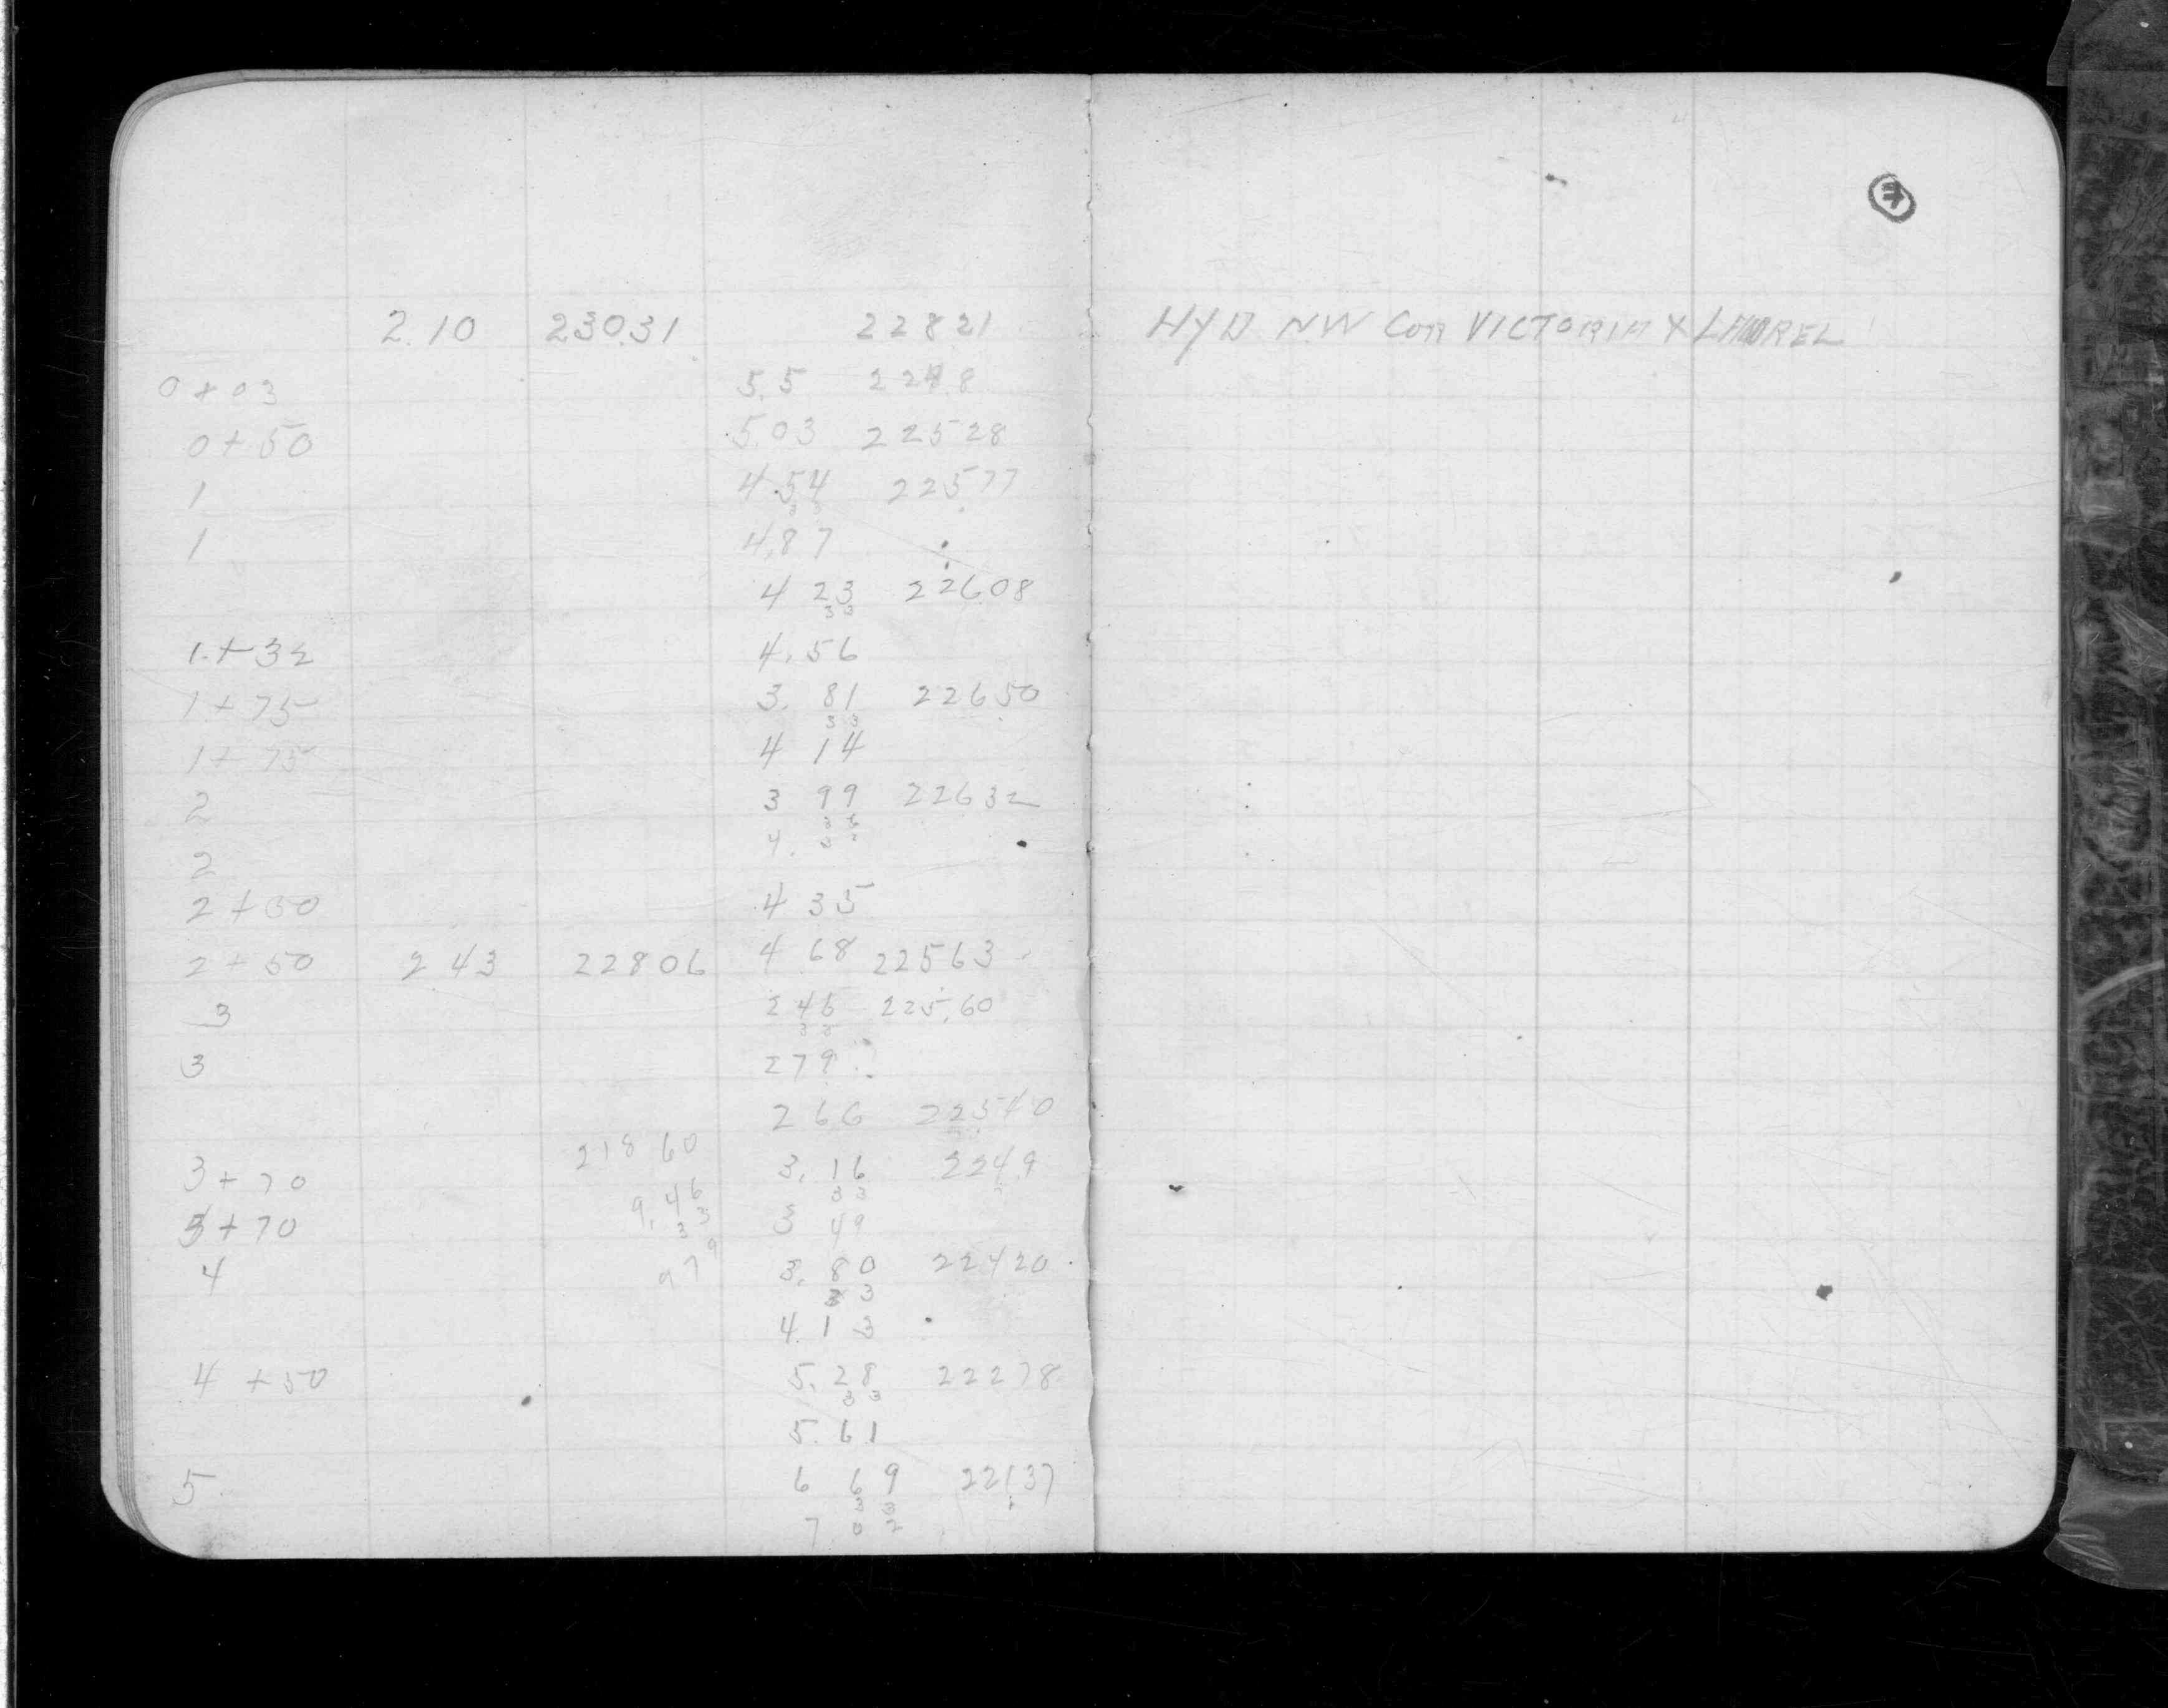 2.10 230.31 228 21 HYD NW COR VICTORIA X LAUREL
0+03 5.5 224.8
0+50 5.03 225 28
1 4.54 225 77
3 3
1 4.87
4 23 226.08
3 3
1+32 4.56
1+75 3.81 226 50
3 3
1+75 4 14
2 3 99 226 32
3 3
2 4.
2+50 4 35
2+50 2 43 228 06 4 68 225 63
3 2 46 225.60
3 3
3 2 79
2 66 225 40
218 60
3+70 3.16 224.9
9.46 3 3
3 3
3+70 3 49
9 79
4 3.80 224 20
3 3
4.13
4+50 5.28 222 78
3 3
5.61
5 6 69 221 37
3 3
7 0 2